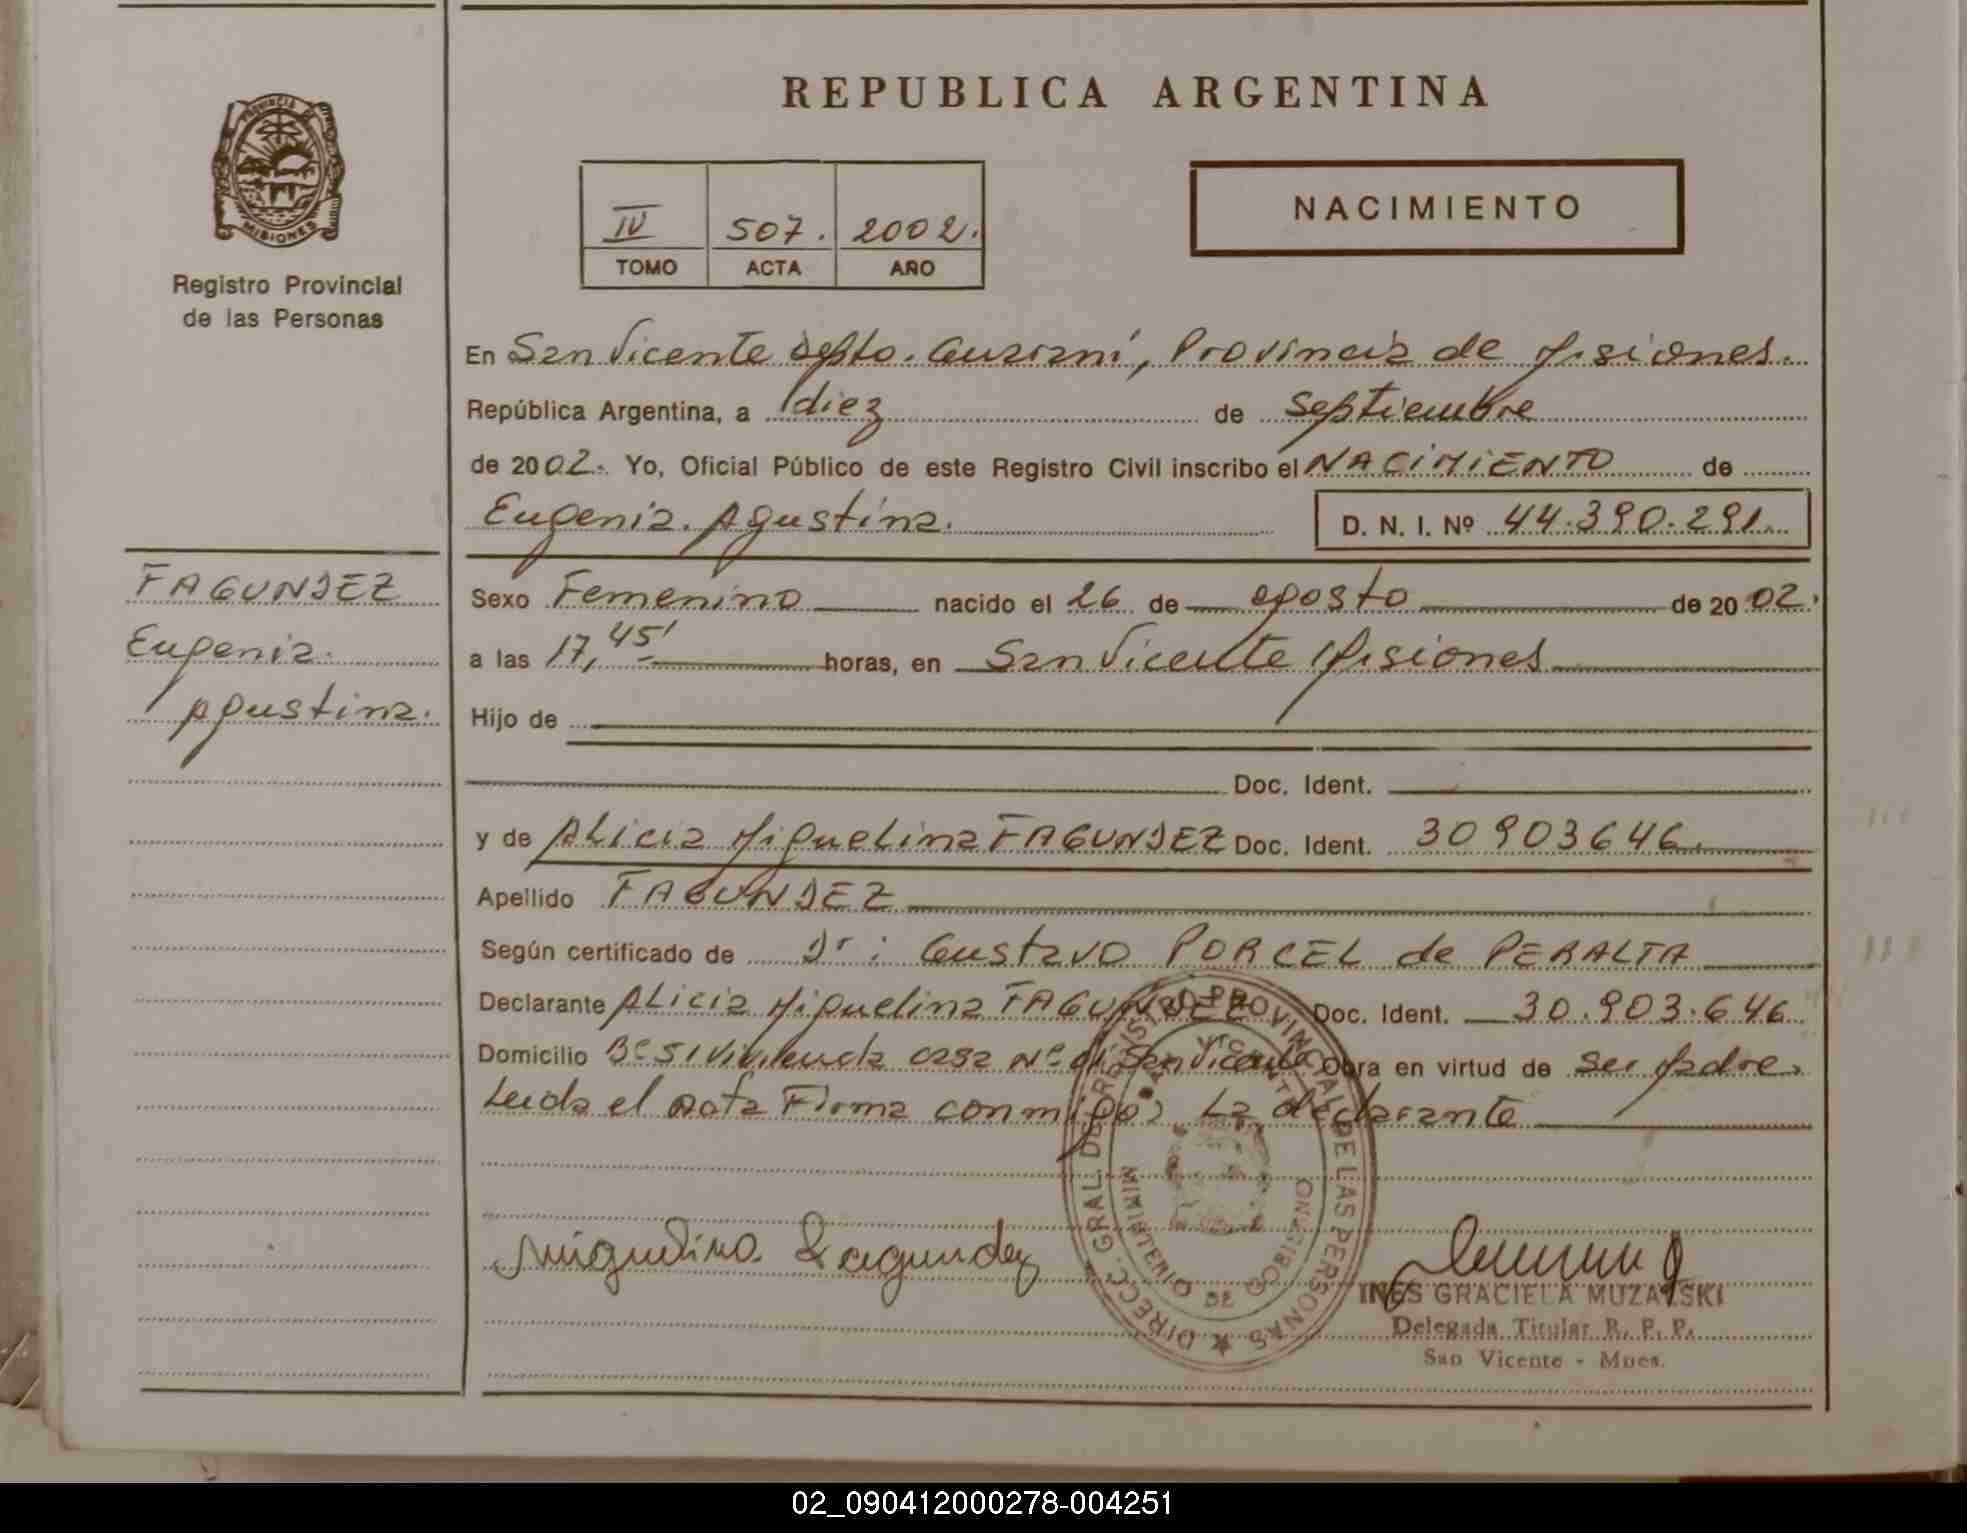 REPUBLICA ARGENTINA
PROVINCIA DE
MISIONES
Registro Provincial
de las Personas
IV 507. 2002.
TOMO ACTA AÑO
NACIMIENTO
En San Vicente Depto. Guaraní, Provincia de Misiones.
República Argentina, a diez de Septiembre
de 2002. Yo, Oficial Público de este Registro Civil inscribo el NACIMIENTO de
Eugenia Agustina. D. N. I. Nº 44.390.291
FAGUNDEZ
Eugenia
Agustina.
Sexo Femenino nacido el 26 de agosto de 2002.
a las 17,45' horas, en San Vicente Misiones
Hijo de
Doc. Ident.
y de ALicia MigueLina FAGUNDEZ Doc. Ident. 30903646.
Apellido FAGUNDEZ
Según certificado de Dr: Gustavo PORCEL de PERALTA
Declarante ALicia Miguelina FAGUNDEZ Doc. Ident. 30.903.646
Domicilio Bº 51 Vivienda casa Nº San Vicente Obra en virtud de ser Madre.
Leida el acta Firma conmigo: La declarante
DIRECC. GRAL. DE REGISTRO PROVINCIAL DE LAS PERSONAS
SAN VICENTE
MINISTERIO DE GOBIERNO
Miguelina Fagundez
INES GRACIELA MUZALSKI
Delegada Titular R. P. P.
San Vicente - Mnes.
02_090412000278-004251